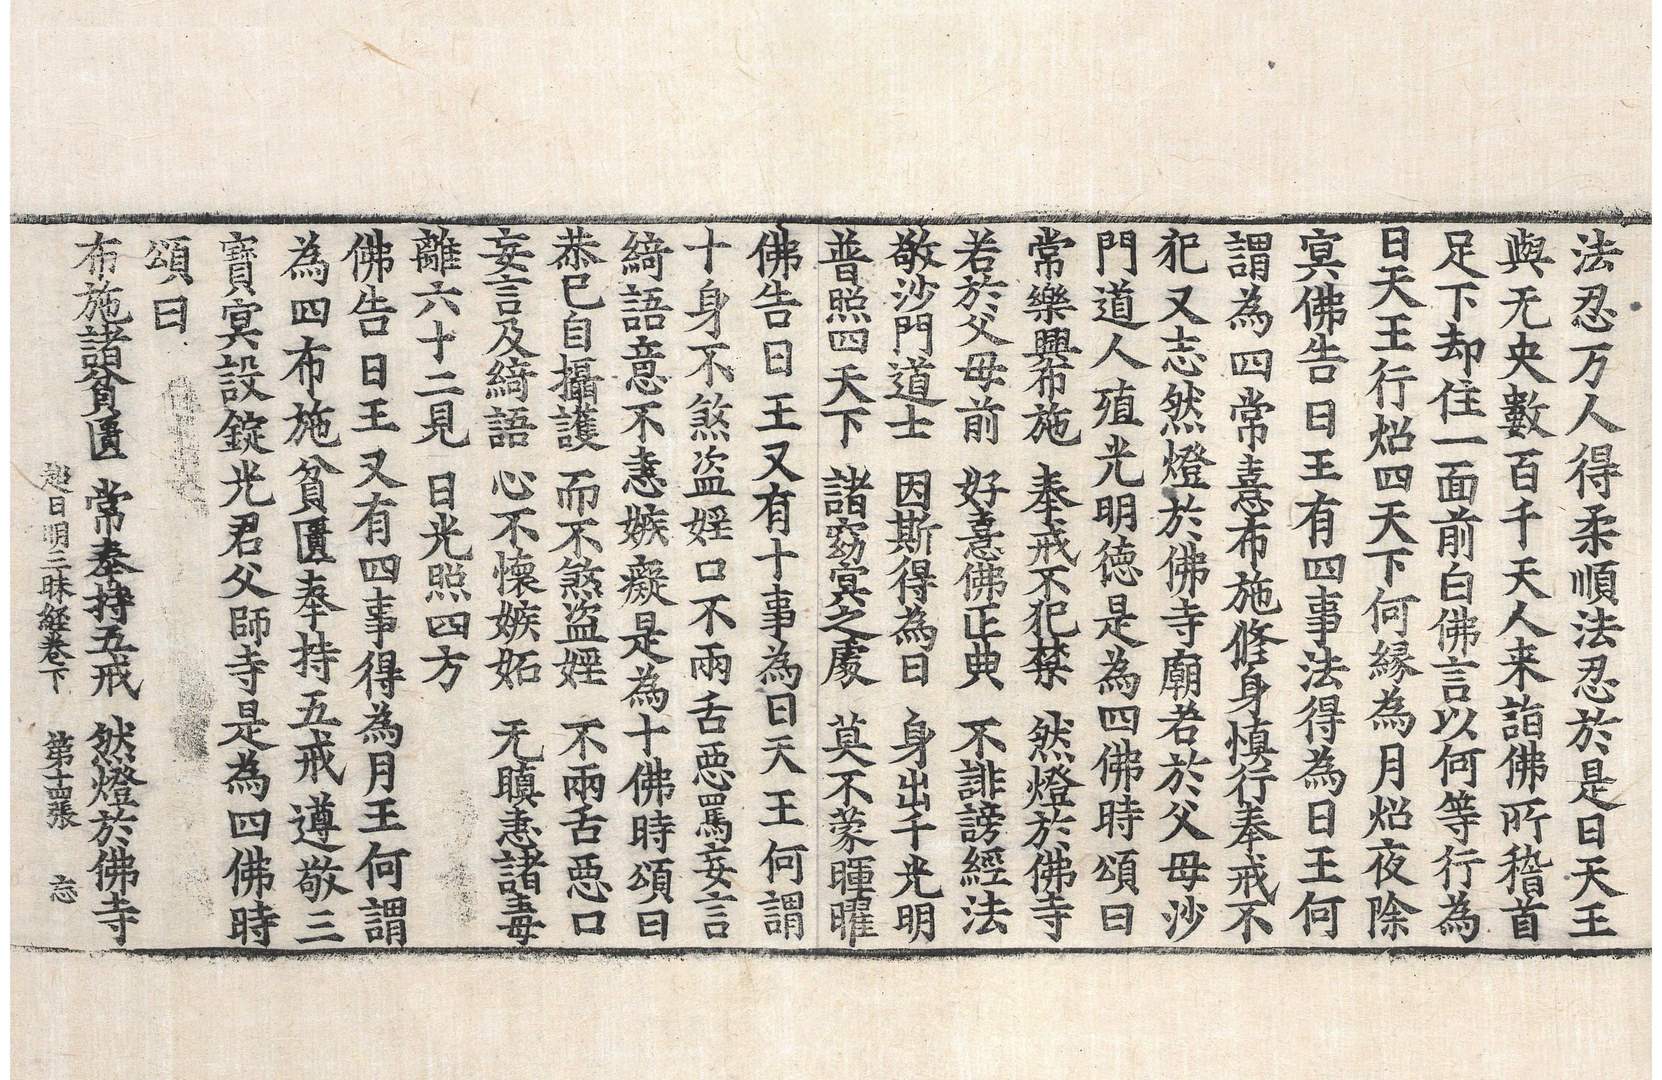 法忍万人得柔順法忍於是日天王
與无央數百千天人来詣佛所稽首
足下却住一面前白佛言以何等行為
日天王行炤四天下何緣為月炤夜除
冥佛告日王有四事法得為日王何
謂為四常憙布施修身慎行奉戒不
犯又志然燈於佛寺廟若於父母沙
門道人殖光明德是為四佛時頌曰
常樂興布施　奉戒不犯禁　然燈於佛寺
若於父母前　好憙佛正典　不誹謗經法
敬沙門道士　因斯得為日　身出千光明
普照四天下　諸窈冥之處　莫不蒙暉曜
佛告日王又有十事為日天王何謂
十身不煞盗婬口不兩舌惡罵妄言
綺語意不恚嫉癡是為十佛時頌曰
恭己自攝護　而不煞盗婬　不兩舌惡口
妄言及綺語　心不懷嫉妬　无瞋恚諸毒
離六十二見　日光照四方
佛告日王又有四事得為月王何謂
為四布施貧匱奉持五戒遵敬三
寶冥設錠光君父師寺是為四佛時
頌曰
布施諸貧匱　常奉持五戒　然燈於佛寺
超日明三昧經卷下　第十四張　忘